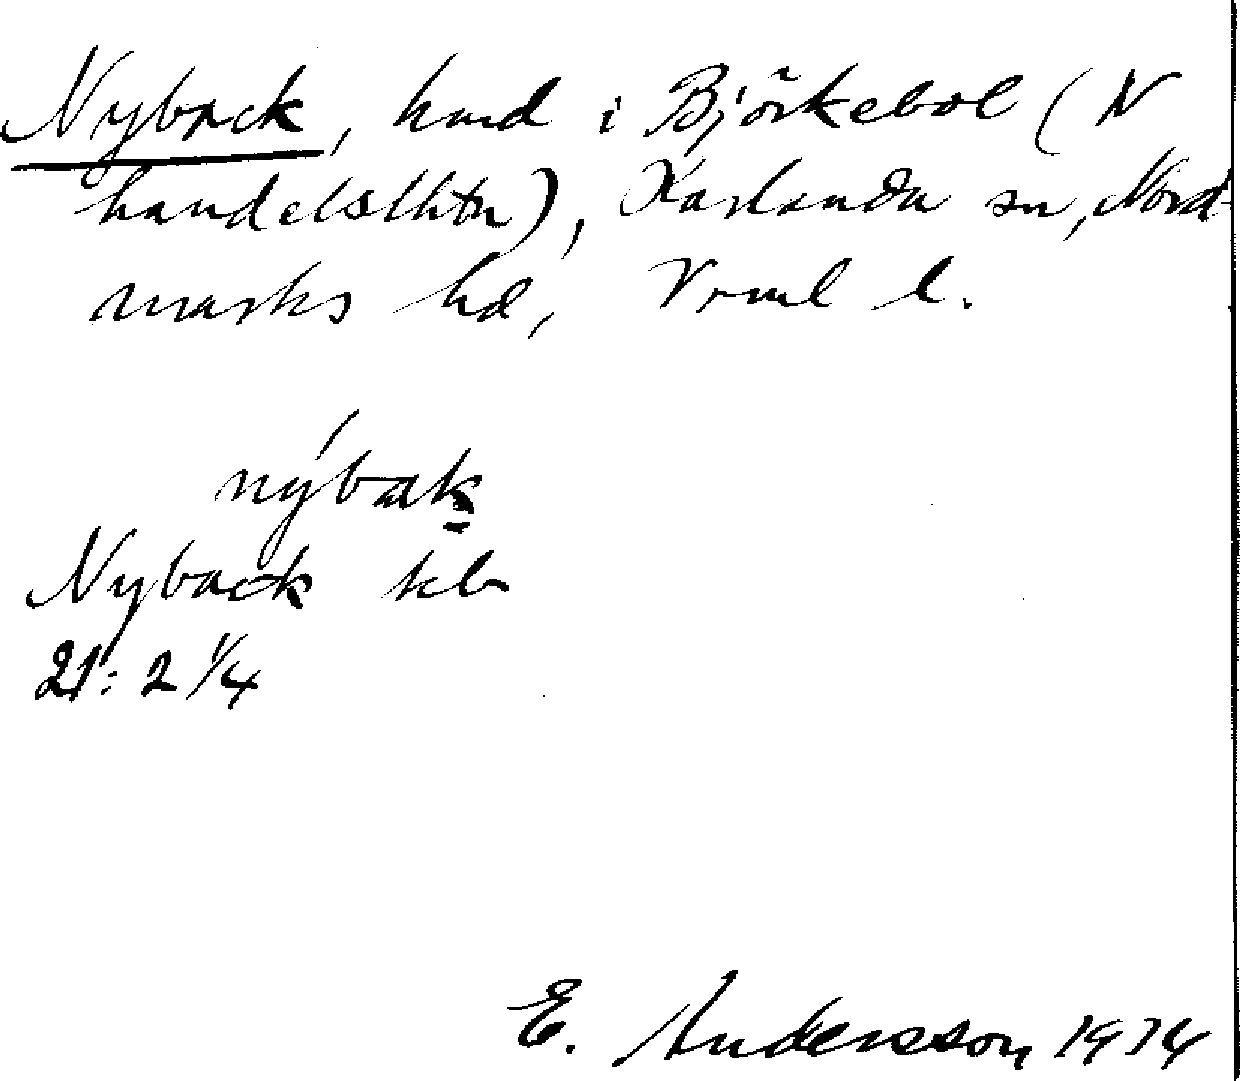 Nyback, hmd i Björkebol (N
handelslhtn), Karlanda sn, Nord-
marks hd, Vrml l.
nýbak
Nyback kb
21: 2 1/4
E. Andersson 1934